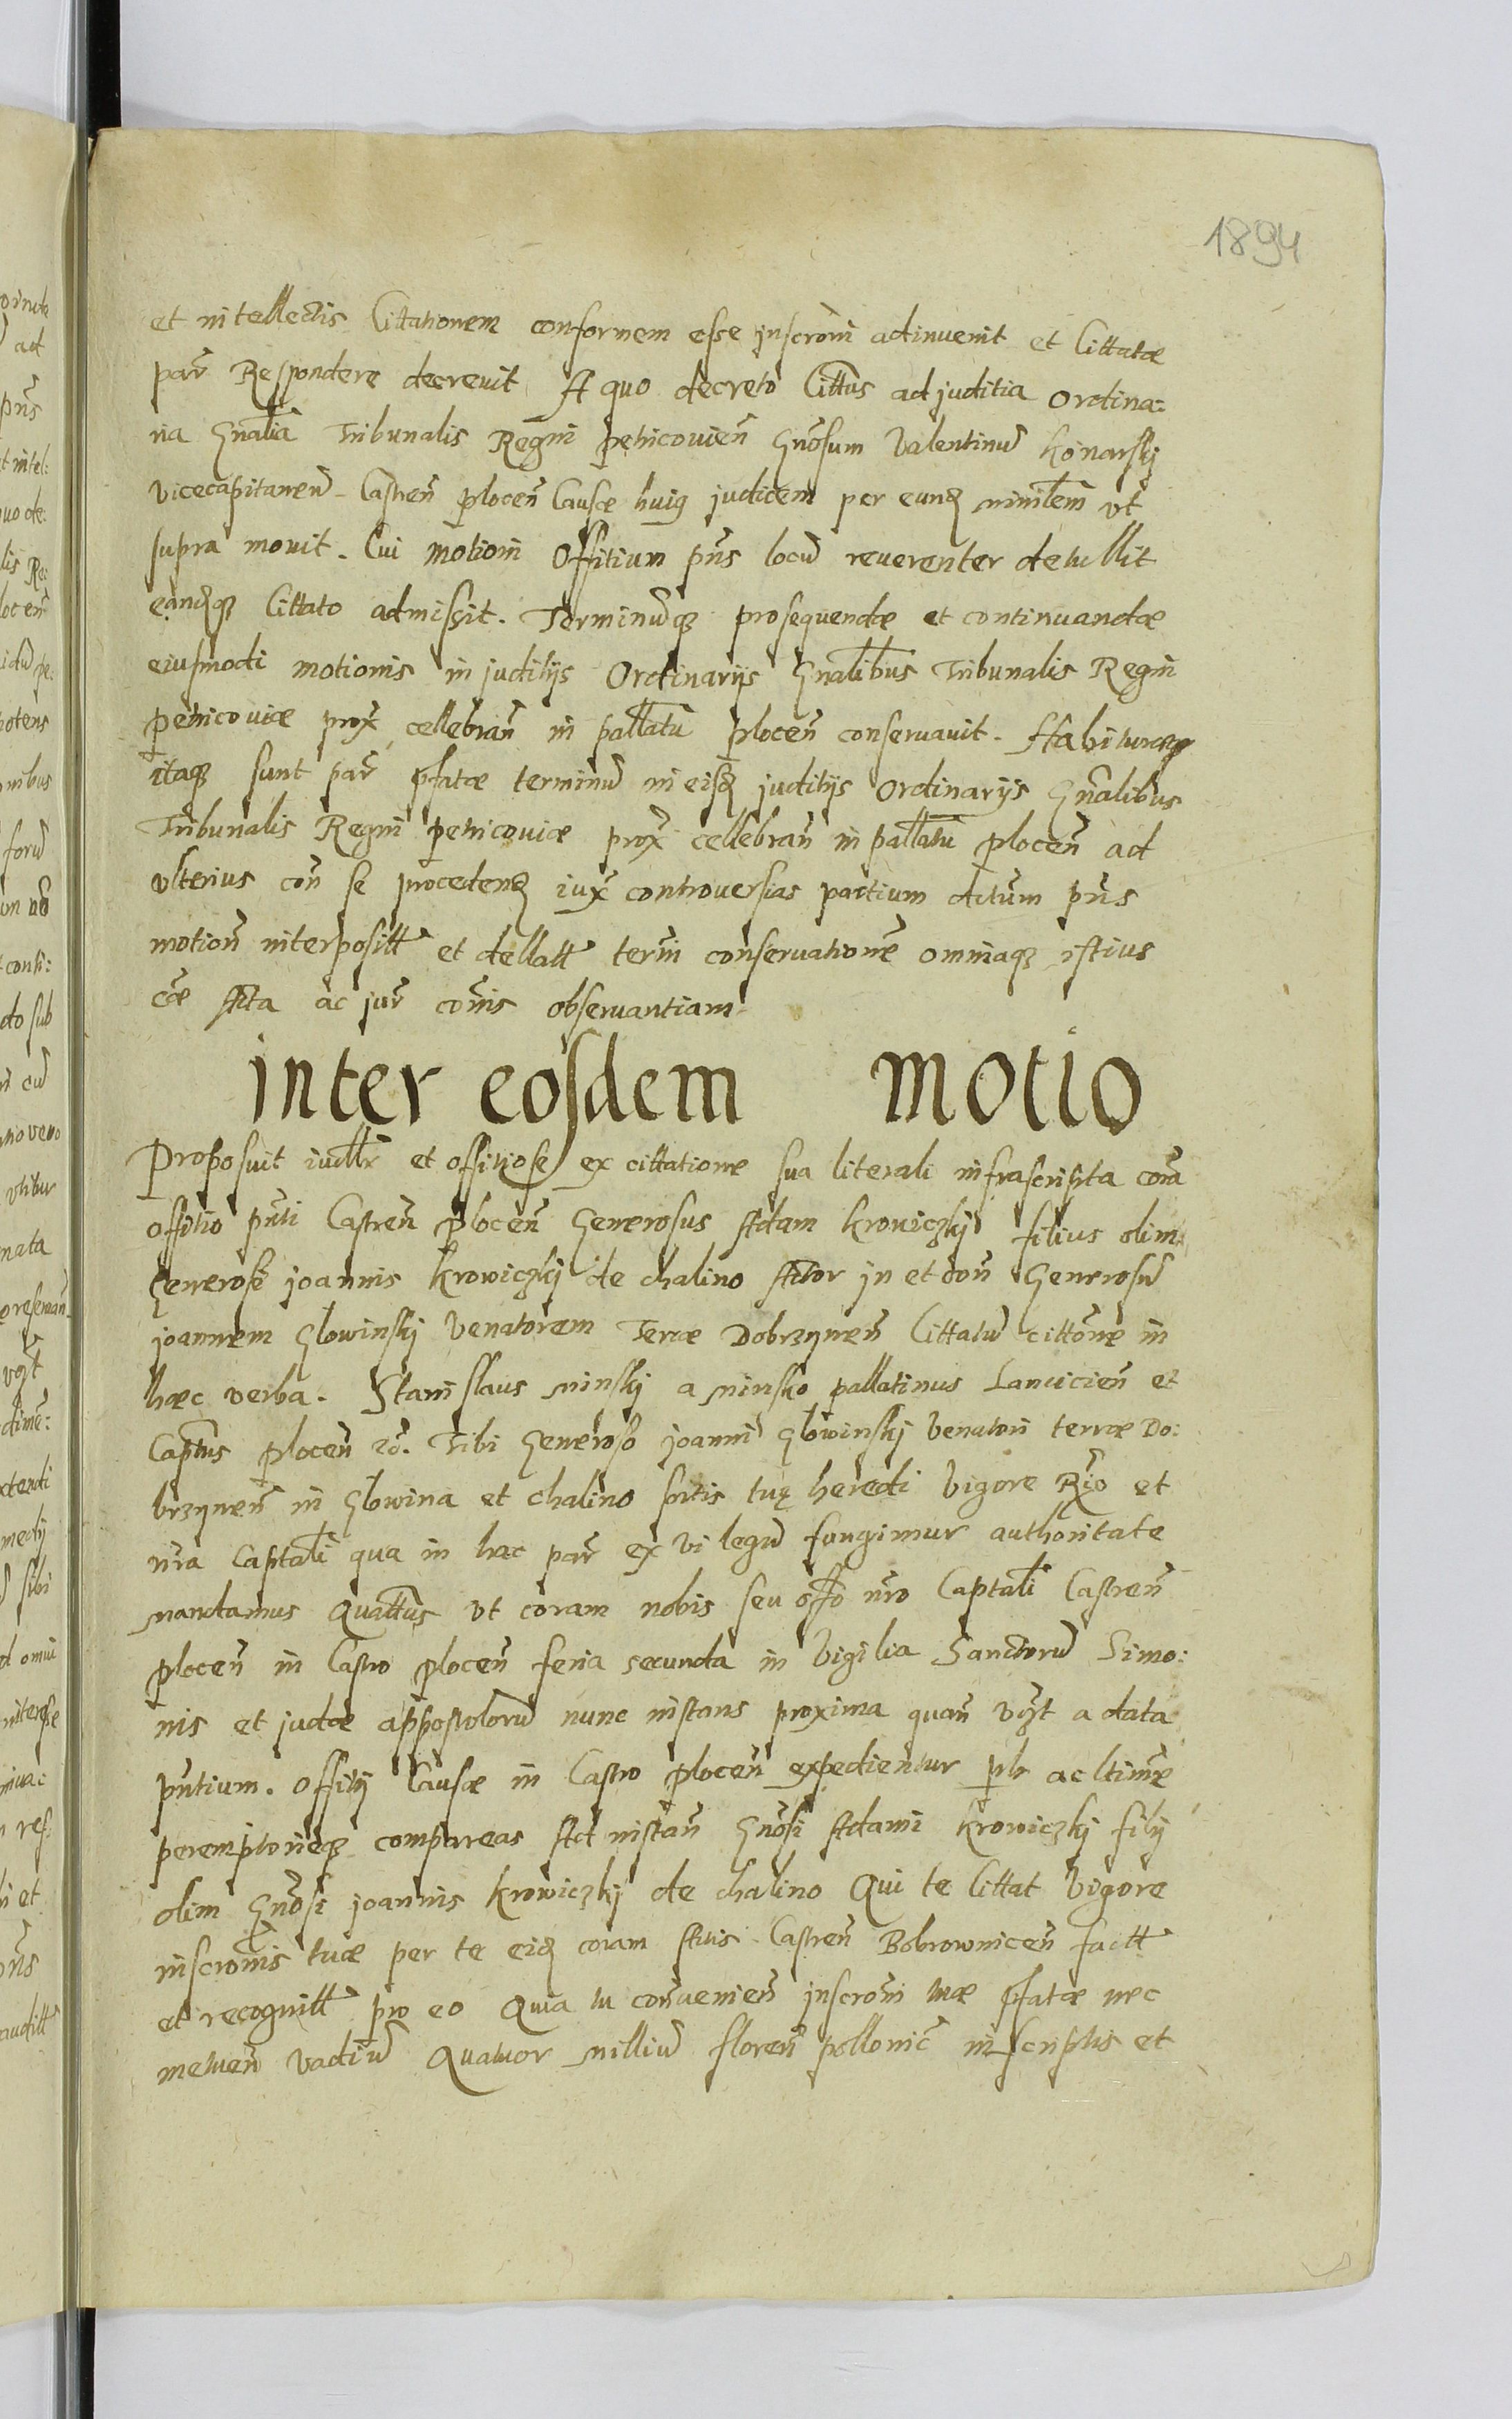 1894
et intellectis Cittationem conformem esse inscrōni adinuenit et Cittatæ
par̃ Respondere decreuit A quo decreto Citt̃us ad juditia Ordina:
ria Gñalia Tribunalis Regni petricouien̄ Gñosum Valentinū Konarskj
vicecapitaneū Castren̄ plocen̄ Causæ huiꝯ judicem per eunđ minilem vt
supra mouit. Cui motioni Offitium pñs locū reuerenter detullit
eandqꝫ Cittato admissit. Terminūqꝫ prosequendæ et continuandæ
eiusmodi motionis in juditijs Ordinarijs Gñalibus Tribunalis Regni
petricouiæ prox̃ cellebran̄ in pallatū plocen̄ conseruauit. Habituræqꝫ
itaqꝫ sunt par̃ p̃fatæ terminū in eisđ juditijs Ordinarijs Gñalibus
Tribunalis Regni petricouiæ prox̃ cellebran̄ in pallatū plocen̄ ad
vlterius con̄ se procedenđ iux̃ controuersias partium dictum pñs
motion̄ interpositt̃ et dellatt̃ term̃i conseruationē omniaqꝫ istius
cæ Acta ac jur̃ cõmis obseruantiam
inter eosdem motio
Proposuit iudlr̃ et offitiose ex cittatione sua literali infrascripta corã
offitio pñti Castren̄ plocen̄ Generosus Adam Krowiczkj filius olim
Generosi joannis Krowiczkj de chalino Actor in et con̄ Generosū
joannem Glowinskj Venatorem Terræ Dobrzynen̄ Cittatū cittõne in
hæc verba. Stanislaus minskj a minsko pallatinus Lancicien̄ et
Capt̃us plocen̄ &c̃. Tibi Generoso joanni Glowinskj Venatori terræ Do:
brzynen̄ in Glowina et chalino sortis tuę heredi Vigore Rio et
nr̃a Captali qua in hac par̃ ex vi legū fungimur authoritate
mandamus Quatt̃us vt coram nobis seu offo nr̃o Captali Castren̄
plocen̄ in Castro plocen̄ feria secunda in Vigilia Sanctorū Simo:
nis et judæ appostolorū nunc instans proxima quan̄ a data
pñtium. Offitij Causæ in Castro plocen̄ expedientur plr ac ltime
peremptorieqꝫ compareas Ad instan̄ Gñosi Adami Krowiczkj filij
olim Gñosi joannis Krowiczkj de chalino Qui te Cittat Vigore
inscrõnis tuæ per te eiđ coram Actis Castren̄ Bobrownicen̄ factt̃
et recognitt̃ pro eo Quia tu conuenien̄ inscrõni tuæ p̃fatæ nec
metuen̄ vadiū Quatuor milliū floren̄ pollonic̃ inscriptis et